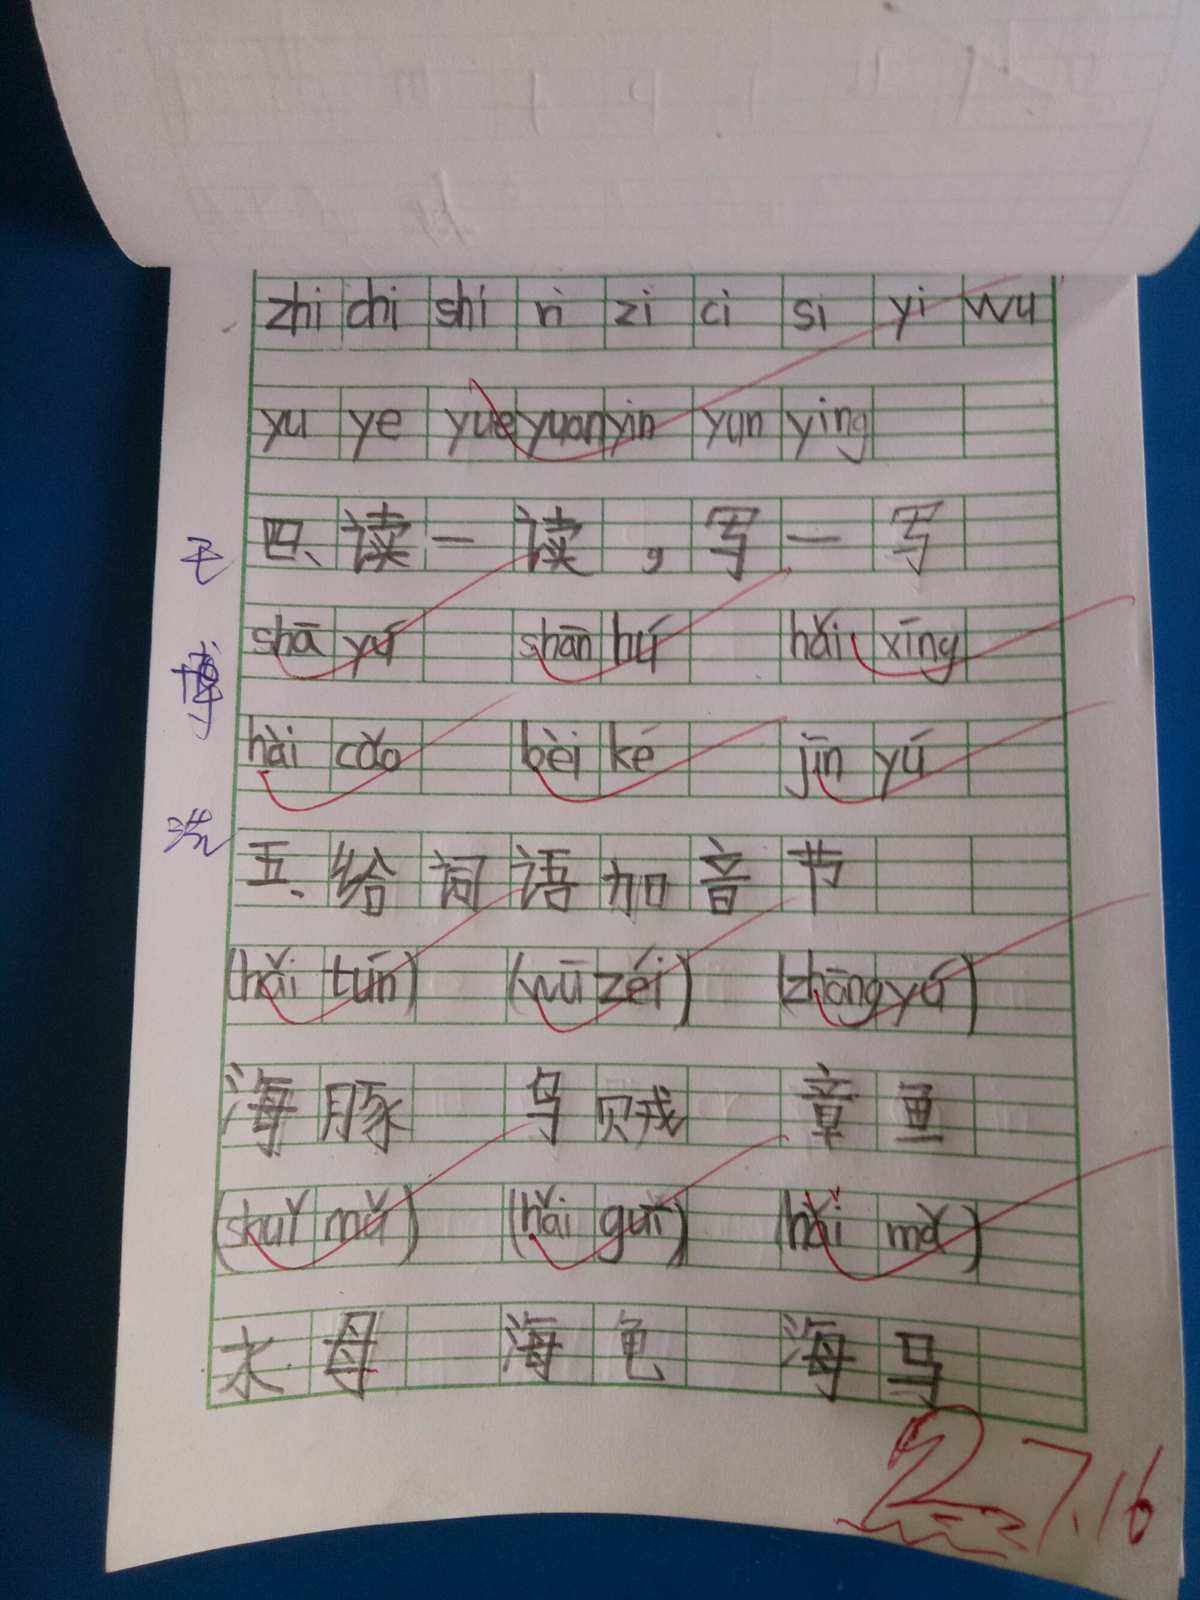 zhi chi shi ri zi ci si yi wu
yu ye yue yuan yin yun ying
四、读一读，写一写
shā yú shān hú hǎi xīng
hài cǎo bèi ké jīn yú
五、给词语加音节
(hǎi tún) (wū zéi) (zhāng yú)
海豚 乌贼 章鱼
(skuǐ mǔ) (hǎi guī) (hǎi mǎ)
水母 海龟 海马
7.16